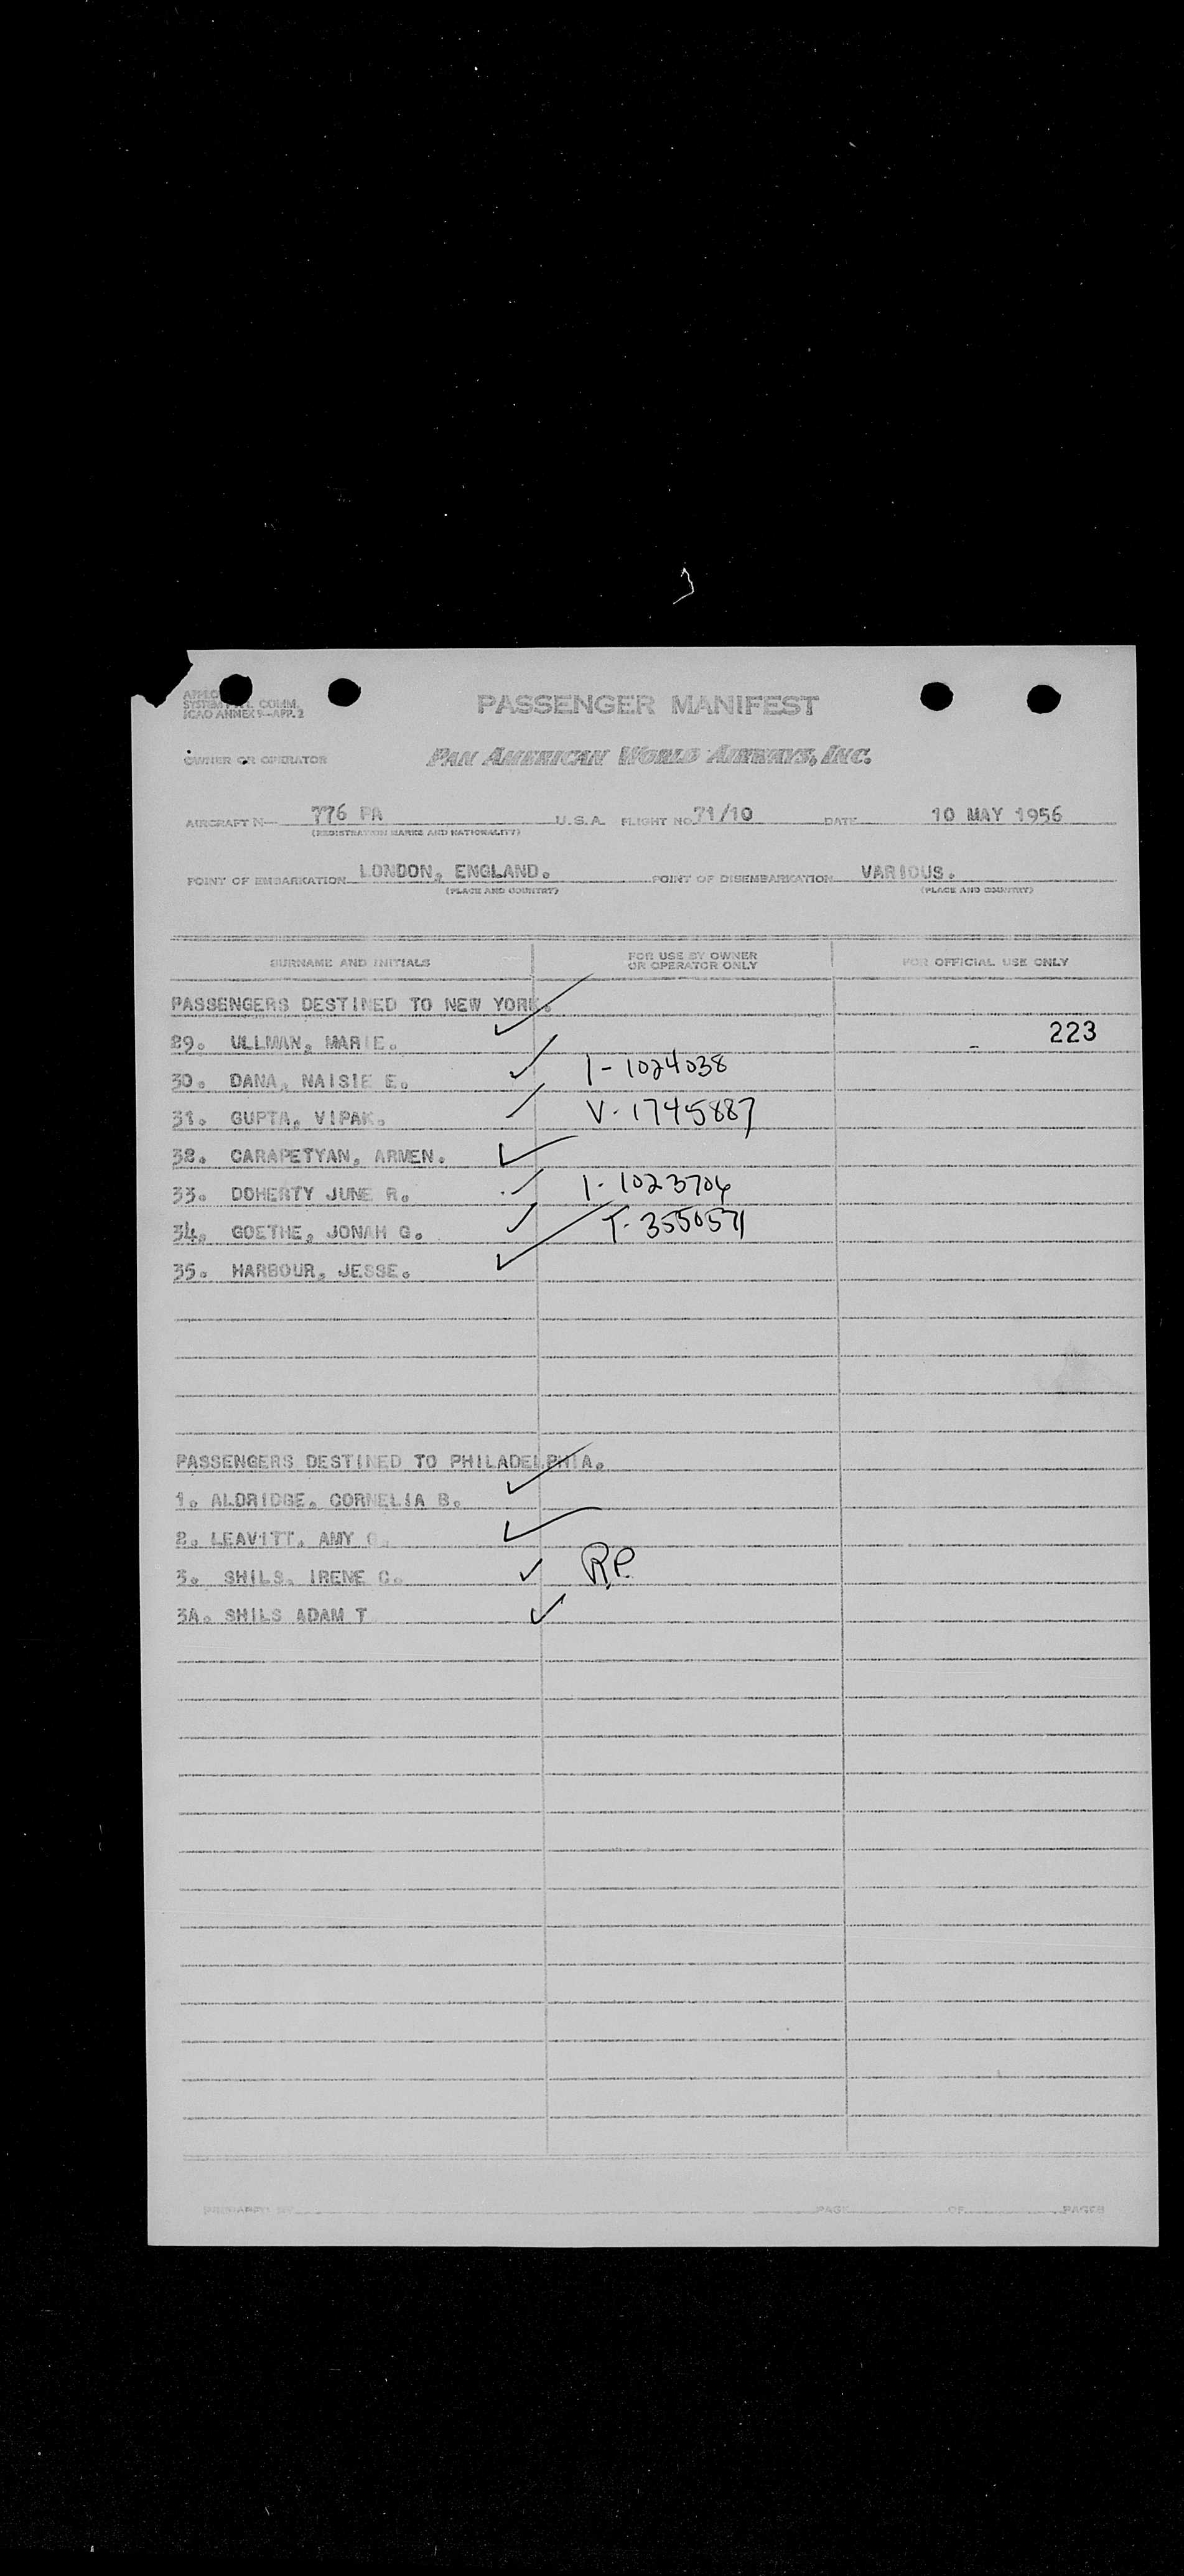 PASSENGER MANIFEST
SYSTEM COMM.
ICAO ANNEX 9—APP. 2
OWNER OR OPERATOR PAN AMERICAN WORLD AIRWAYS, INC.
AIRCRAFT N— 776 PA U.S.A. FLIGHT NO. 71/10 DATE 10 MAY 1956
(REGISTRATION MARKS AND NATIONALITY)
POINT OF EMBARKATION LONDON, ENGLAND. POINT OF DISEMBARKATION VARIOUS.
(PLACE AND COUNTRY) (PLACE AND COUNTRY)
SURNAME AND INITIALS FOR USE BY OWNER OR OPERATOR ONLY FOR OFFICIAL USE ONLY
PASSENGERS DESTINED TO NEW YORK.
29. ULLMAN, MARIE. 223
30. DANA, NAISIE E. I-1024038
31. GUPTA, VIPAK. V-1745887
32. CARAPETYAN, ARMEN.
33. DOHERTY JUNE R. I-1023704
34. GOETHE, JONAH G. T-3550571
35. HARBOUR, JESSE.
PASSENGERS DESTINED TO PHILADELPHIA.
1. ALDRIDGE, CORNELIA B.
2. LEAVITT, AMY
3. SHILS, IRENE C. R.P.
3A. SHILS ADAM T
PREPARED BY PAGE OF PAGES